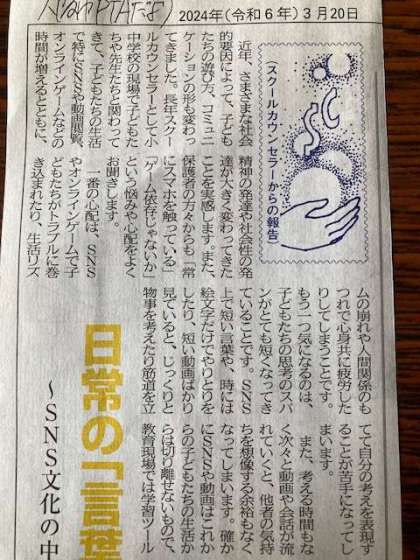 PTAだより
2024年(令和6年)3月20日
(スクールカウンセラーからの報告)
SC
近年、さまざまな社会
的要因によって、子ども
たちの遊び方、コミュニ
ケーションの形も変わっ
てきました。長年スクー
ルカウンセラーとして小
中学校の現場で子どもた
ちや先生たちと関わって
きて、子どもたちの生活
で特にSNSや動画閲覧、
オンラインゲームなどの
時間が増えるとともに、
精神の発達や社会性の発
達が大きく変わってきた
ことを実感します。また、
保護者の方々からも「常
にスマホを触っている」
「ゲーム依存じゃないか」
という悩みや心配をよく
お聞きします。
一番の心配は、SNS
やオンラインゲームで子
どもたちがトラブルに巻
き込まれたり、生活リズ
ムの崩れや人間関係のも
つれで心身共に疲労した
りしてしまうことです。
もう一つ気になるのは、
子どもたちの思考のスパ
ンがとても短くなってき
ていることです。SNS
上で短い言葉や、時には
絵文字だけでやりとりを
したり、短い動画ばかり
見ていると、じっくりと
物事を考えたり筋道を立
てて自分の考えを表現す
ることが苦手になってし
まいます。
また、考える時間もな
く次々と動画や会話が流
れていくと、他者の気持
ちを想像する余裕もなく
なってしまいます。確か
にSNSや動画はこれか
らの子どもたちの生活か
らは切り離せないもので、
教育現場では学習ツール
日常の「言葉
～SNS文化の中